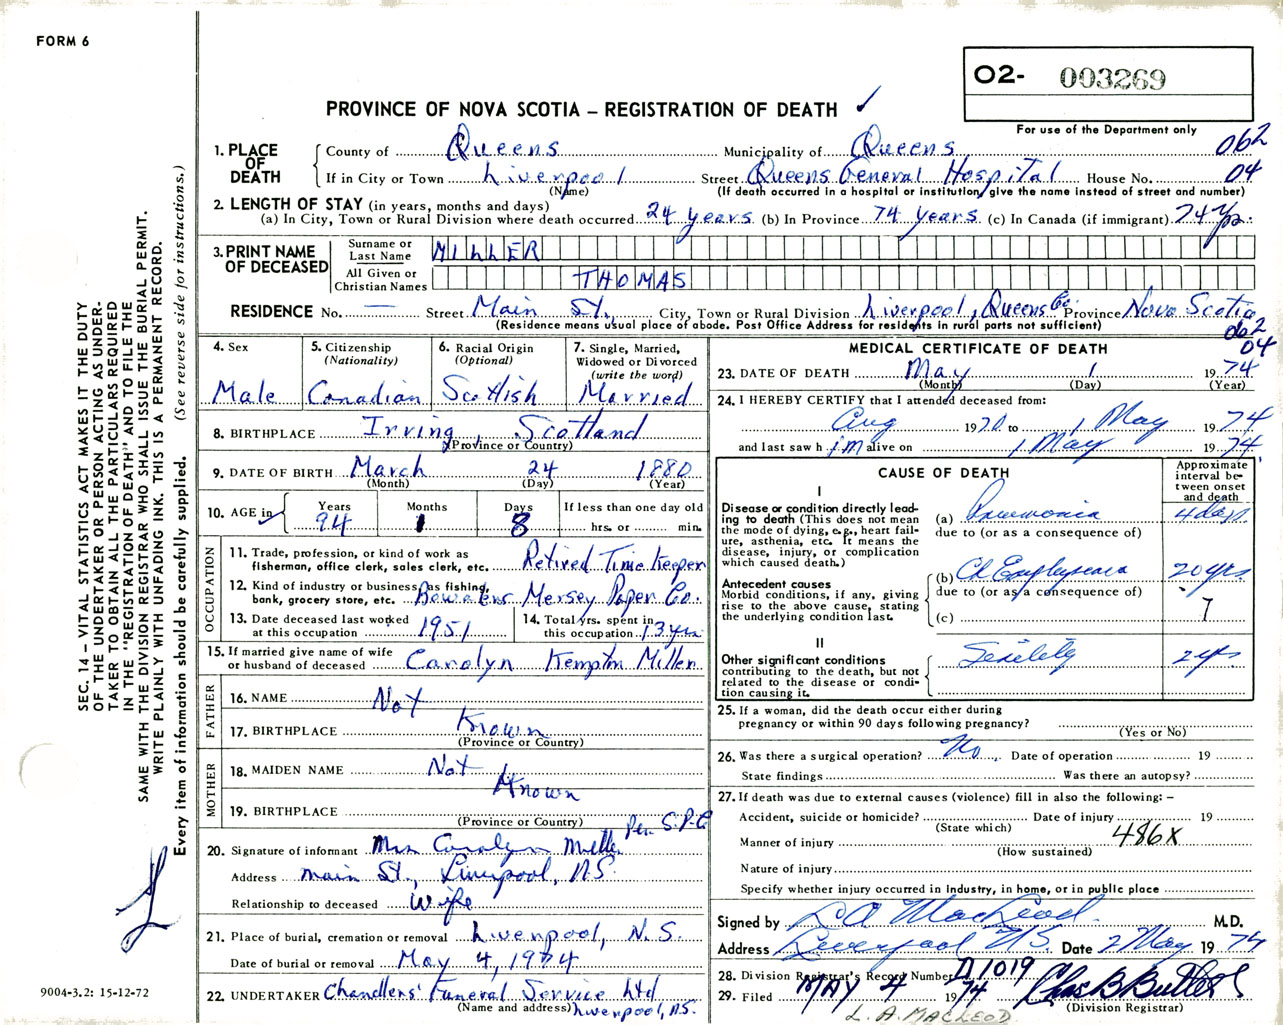 FORM 6
O2- 003269
PROVINCE OF NOVA SCOTIA – REGISTRATION OF DEATH ✓
For use of the Department only
1. PLACE OF DEATH
County of Queens Municipality of Queens 062
If in City or Town Liverpool Street Queens General Hospital House No. 04
(Name) (If death occurred in a hospital or institution, give the name instead of street and number)
2. LENGTH OF STAY (in years, months and days)
(a) In City, Town or Rural Division where death occurred 24 years (b) In Province 74 years (c) In Canada (if immigrant) 74 yrs.
3. PRINT NAME OF DECEASED
Surname or Last Name MILLER
All Given or Christian Names THOMAS
RESIDENCE No. — Street Main St., City, Town or Rural Division Liverpool, Queens Co. Province Nova Scotia
(Residence means usual place of abode. Post Office Address for residents in rural parts not sufficient)
062
04
4. Sex Male
5. Citizenship (Nationality) Canadian
6. Racial Origin (Optional) Scottish
7. Single, Married, Widowed or Divorced (write the word) Married
8. BIRTHPLACE Irving, Scotland
(Province or Country)
9. DATE OF BIRTH March 24 1880
(Month) (Day) (Year)
10. AGE in Years 94 Months 1 Days 8 If less than one day old
hrs. or min.
OCCUPATION
11. Trade, profession, or kind of work as fisherman, office clerk, sales clerk, etc. Retired Time Keeper
12. Kind of industry or business, as fishing, bank, grocery store, etc. Bowaters Mersey Paper Co.
13. Date deceased last worked at this occupation 1951
14. Total yrs. spent in this occupation 13 yrs
15. If married give name of wife or husband of deceased Carolyn Kempton Miller
FATHER
16. NAME Not
17. BIRTHPLACE Known
(Province or Country)
MOTHER
18. MAIDEN NAME Not
Known
19. BIRTHPLACE
(Province or Country)
Per. S.P.C
20. Signature of informant Mrs Carolyn Miller
Address Main St., Liverpool, N.S.
Relationship to deceased Wife
21. Place of burial, cremation or removal Liverpool, N.S.
Date of burial or removal May 4, 1974
22. UNDERTAKER Chandlers' Funeral Service Ltd
(Name and address) Liverpool, N.S.
MEDICAL CERTIFICATE OF DEATH
23. DATE OF DEATH May 1 1974
(Month) (Day) (Year)
24. I HEREBY CERTIFY that I attended deceased from:
Aug 1970 to 1 May 1974
and last saw him alive on 1 May 1974
CAUSE OF DEATH
Approximate interval between onset and death
I
Disease or condition directly leading to death (This does not mean the mode of dying, e.g., heart failure, asthenia, etc. It means the disease, injury, or complication which caused death.)
(a) Pneumonia 4 days
due to (or as a consequence of)
Antecedent causes
Morbid conditions, if any, giving rise to the above cause, stating the underlying condition last.
(b) Ch Emphysema 20 yrs.
due to (or as a consequence of)
(c) 7
II
Other significant conditions contributing to the death, but not related to the disease or condition causing it.
Senility 2 yrs
25. If a woman, did the death occur either during pregnancy or within 90 days following pregnancy?
(Yes or No)
26. Was there a surgical operation? No Date of operation 19
State findings Was there an autopsy?
27. If death was due to external causes (violence) fill in also the following: –
Accident, suicide or homicide? Date of injury 19
(State which)
Manner of injury 486X
(How sustained)
Nature of injury
Specify whether injury occurred in industry, in home, or in public place
Signed by L A MacLeod. M.D.
Address Liverpool N.S. Date 2 May 1974
28. Division Registrar's Record Number D1019
29. Filed MAY 4 1974 Chas B Butler
(Division Registrar)
L. A. MACLEOD
SEC. 14 – VITAL STATISTICS ACT MAKES IT THE DUTY
OF THE UNDERTAKER OR PERSON ACTING AS UNDER-
TAKER TO OBTAIN ALL THE PARTICULARS REQUIRED
IN THE "REGISTRATION OF DEATH" AND TO FILE THE
SAME WITH THE DIVISION REGISTRAR WHO SHALL ISSUE THE BURIAL PERMIT.
WRITE PLAINLY WITH UNFADING INK. THIS IS A PERMANENT RECORD.
Every item of information should be carefully supplied. (See reverse side for instructions.)
9004-3.2: 15-12-72